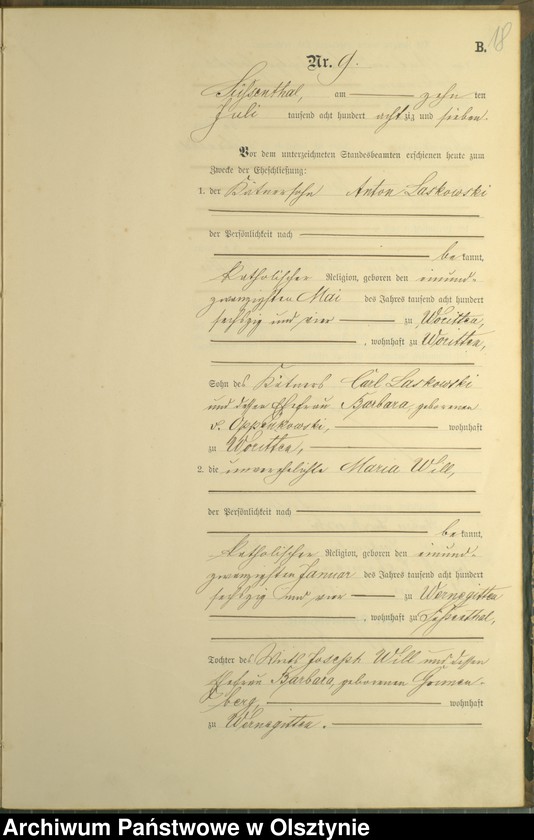 B. 18
Nr. 9.
am zehn ten
Juli tausend acht hundert achtzig und sieben.
Vor dem unterzeichneten Standesbeamten erschienen heute zum
Zwecke der Eheschließung:
1. der Käthnersohn Anton Laskowski
der Persönlichkeit nach
be kannt,
katholischer Religion, geboren den einund-
zwanzigsten Mai des Jahres tausend acht hundert
sechszig und vier zu Woritten,
, wohnhaft zu Woritten,
Sohn des Käthners Carl Laskowski
und dessen Ehefrau Barbara, geborenen
v. Oppenkowski, wohnhaft
zu Woritten,
2. die unverehelichte Maria Will,
der Persönlichkeit nach
be kannt,
katholischer Religion, geboren den einund-
zwanzigsten Januar des Jahres tausend acht hundert
sechszig und vier zu Wernegitten
, wohnhaft zu
Tochter des Wirth Joseph Will und dessen
Ehefrau Barbara, geborenen
berg, wohnhaft
zu Wernegitten.
Archiwum Państwowe w Olsztynie